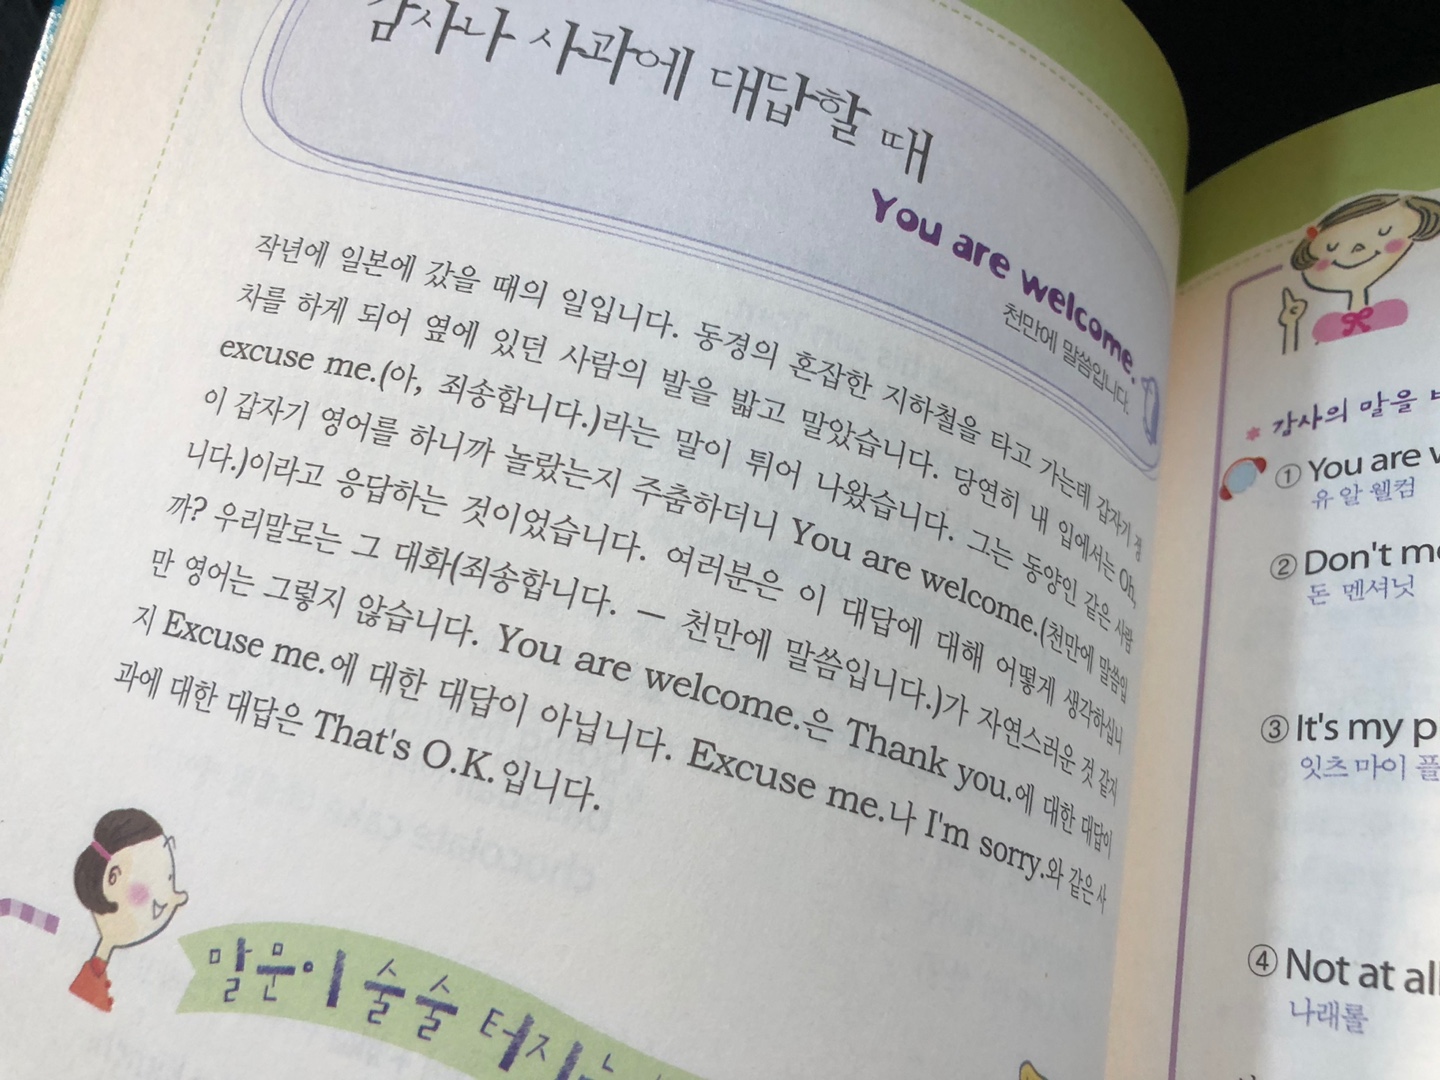 감사나 사과에 대답할 때
You are welcome.
천만에 말씀입니다.
작년에 일본에 갔을 때의 일입니다. 동경의 혼잡한 지하철을 타고 가는데 갑자기 정
차를 하게 되어 옆에 있던 사람의 발을 밟고 말았습니다. 당연히 내 입에서는 Oh,
excuse me.(아, 죄송합니다.)라는 말이 튀어 나왔습니다. 그는 동양인 같은 사람
이 갑자기 영어를 하니까 놀랐는지 주춤하더니 You are welcome.(천만에 말씀입
니다.)이라고 응답하는 것이었습니다. 여러분은 이 대답에 대해 어떻게 생각하십니
까? 우리말로는 그 대화(죄송합니다. — 천만에 말씀입니다.)가 자연스러운 것 같지
만 영어는 그렇지 않습니다. You are welcome.은 Thank you.에 대한 대답이
지 Excuse me.에 대한 대답이 아닙니다. Excuse me.나 I'm sorry.와 같은 사
과에 대한 대답은 That's O.K.입니다.
말문이 술술 터지는
* 감사의 말을
① You are
유 알 웰컴
② Don't
돈 멘셔닛
③ It's my
잇츠 마이
④ Not at all
나래롤